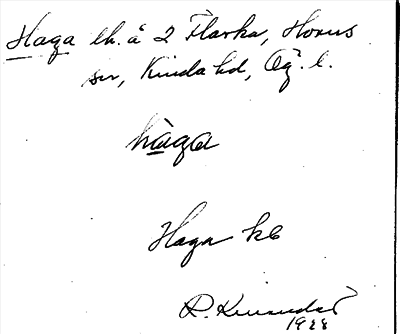 Haga lh. å 2 Flarka, Horns
sn, Kinda hd, Ög. l.
hàga
Haga kb
R.
1928